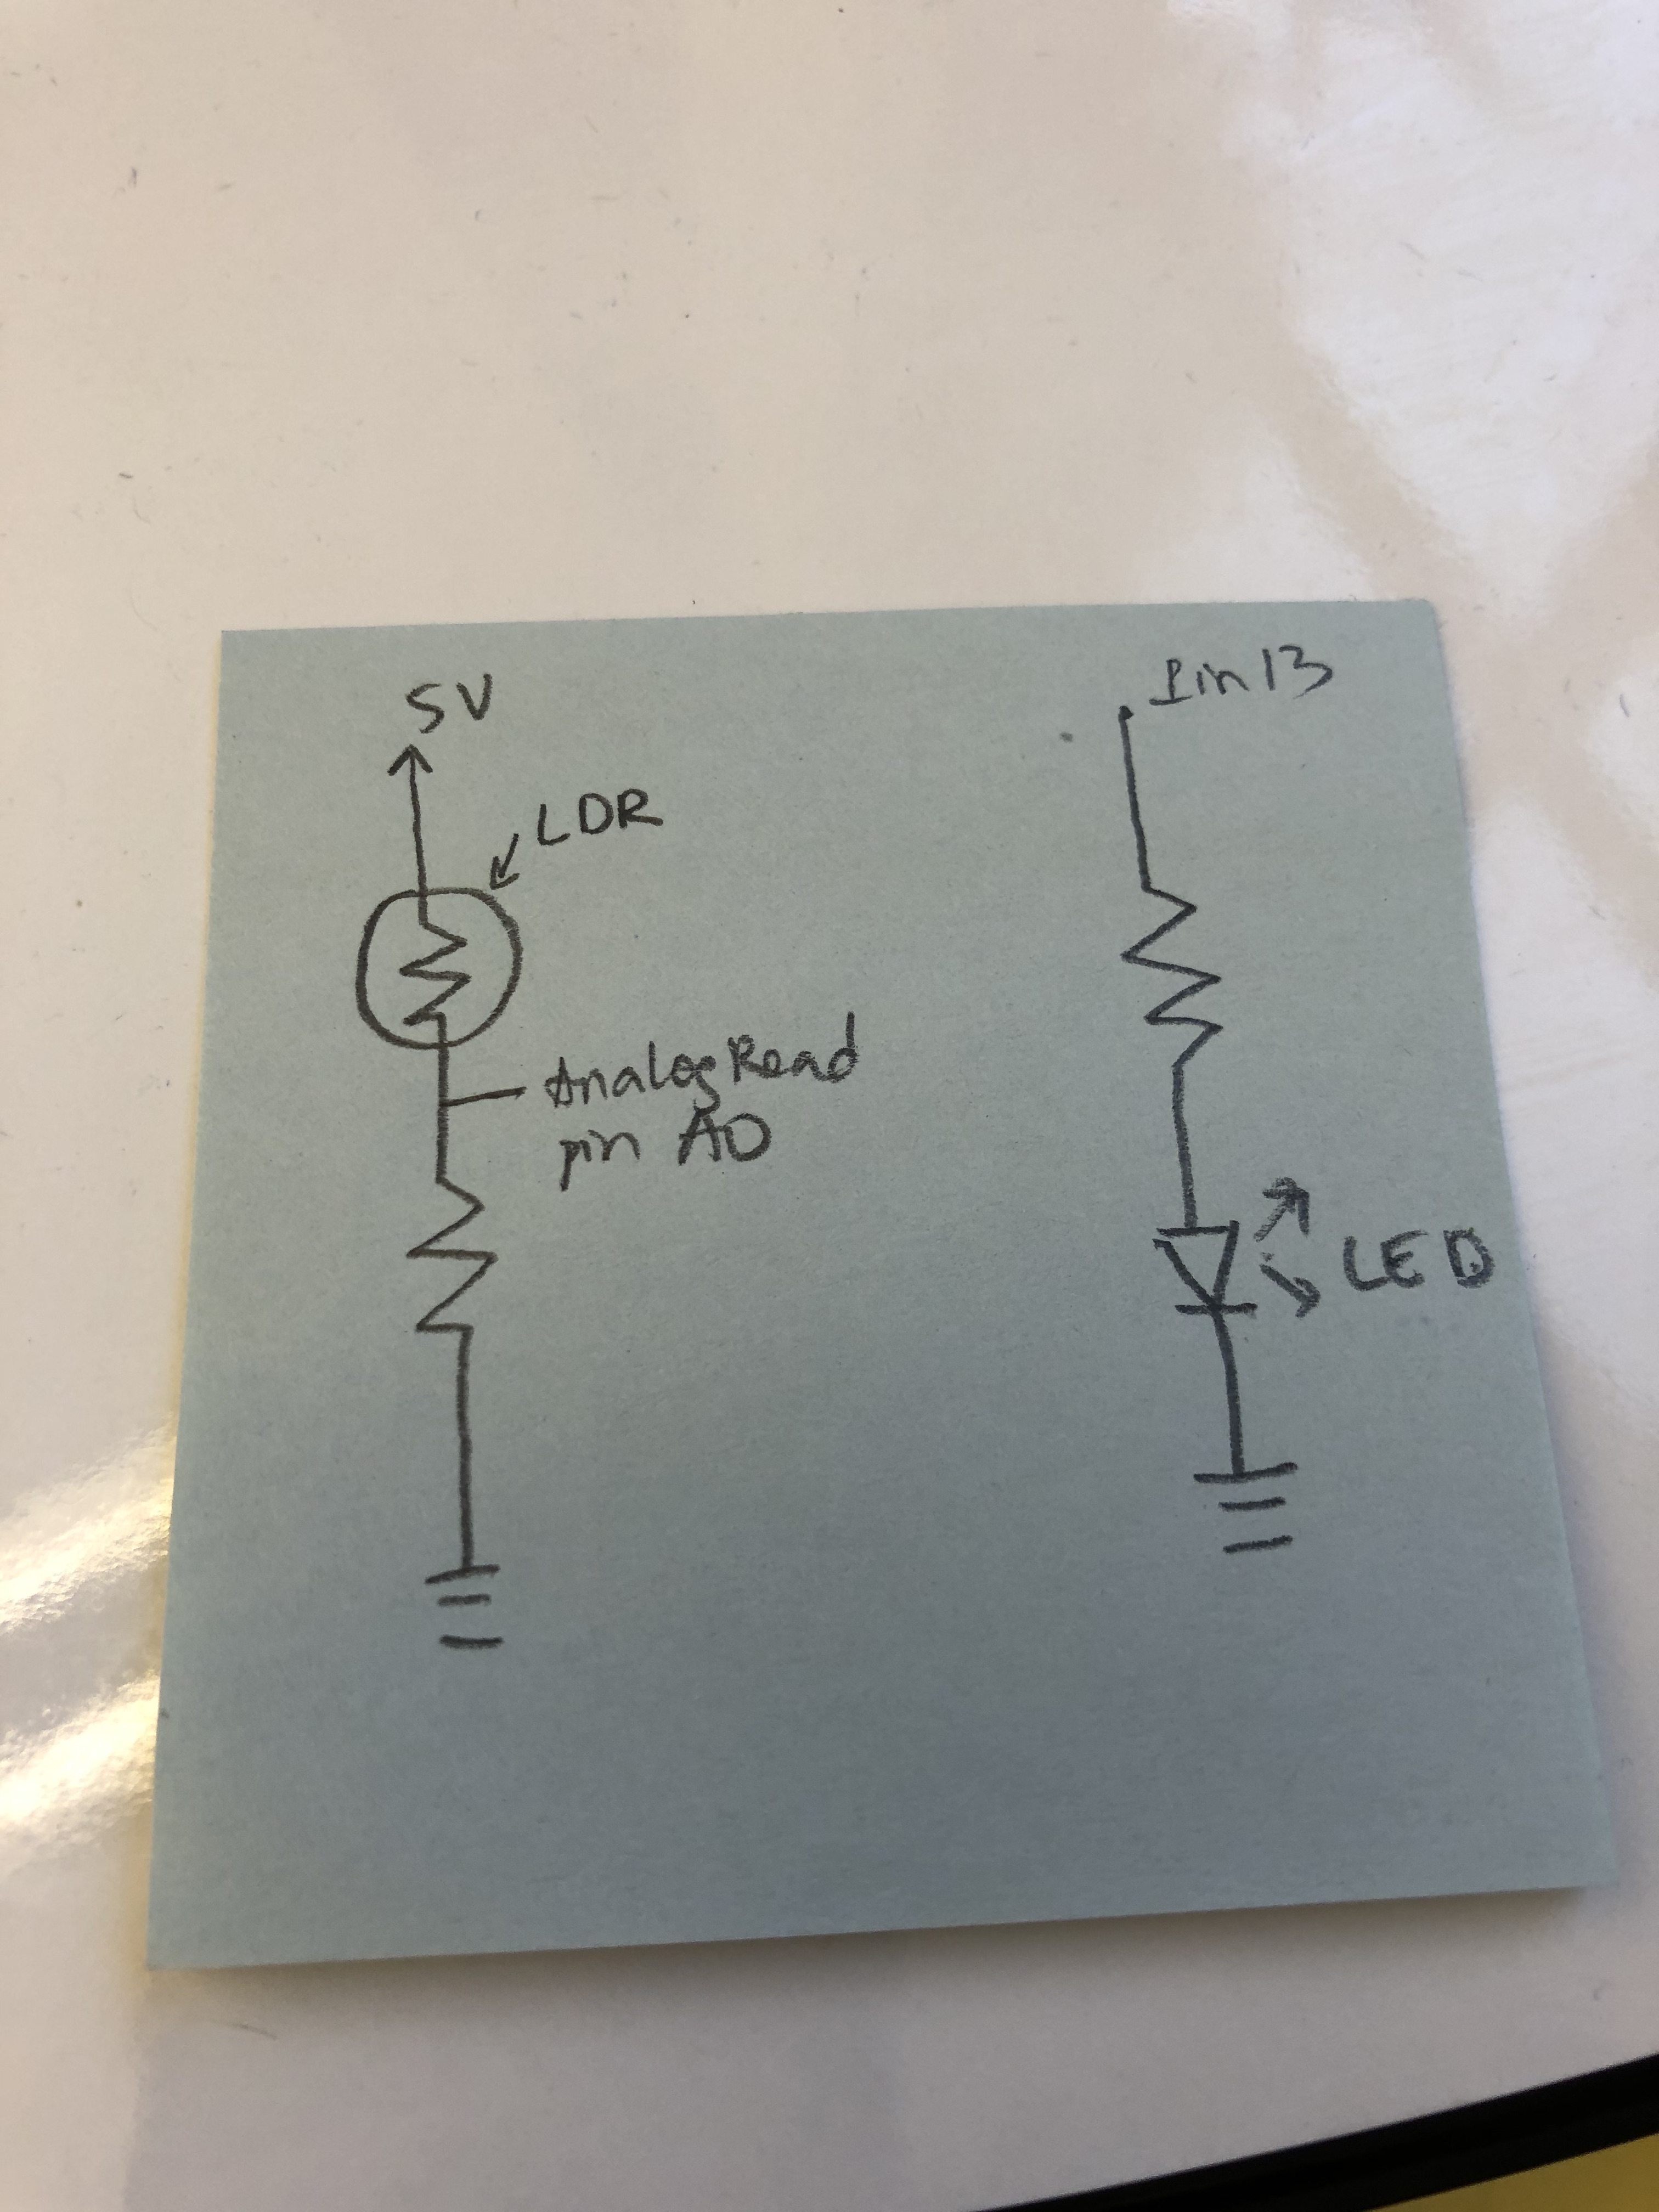 5V
LDR
AnalogRead
pin A0
Pin 13
LED